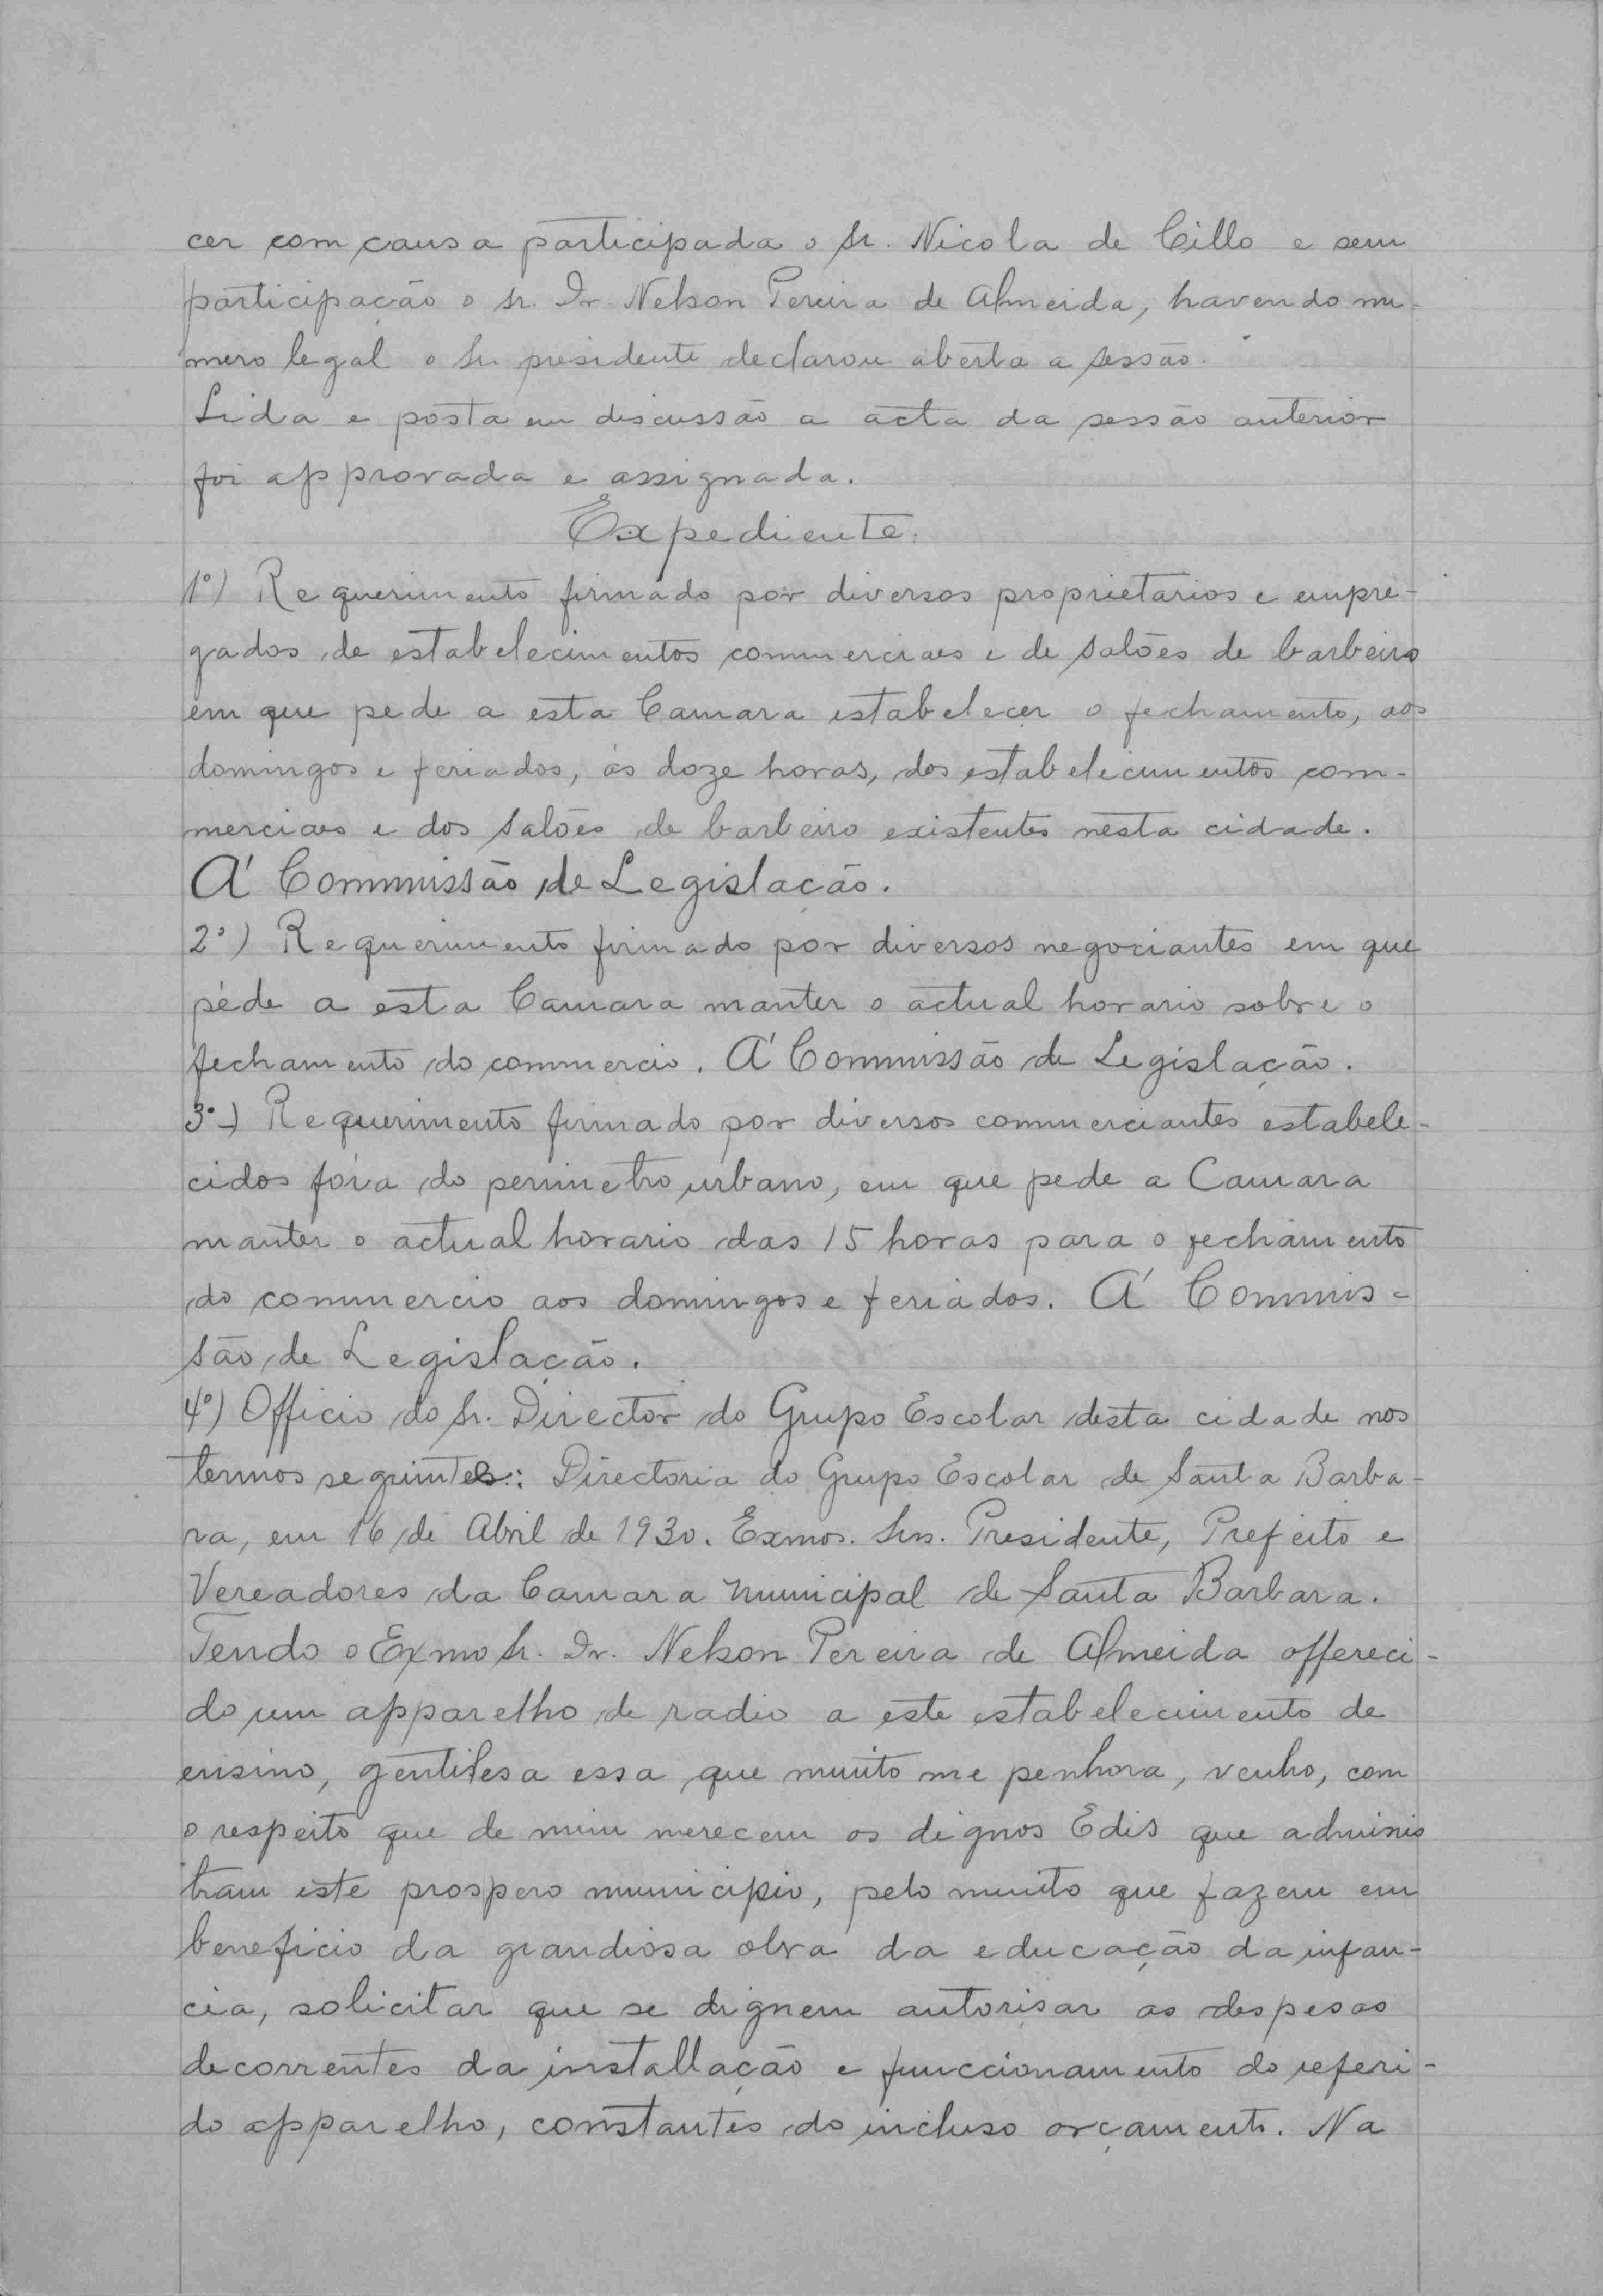 cer com causa participada o Sr. Nicola de Cillo e sem
participação o sr. Dr. Nelson Pereira de Almeida, havendo nu-
mero legal o Sr. presidente declarou aberta a sessão.
Lida e posta em discussão a acta da sessão anterior
foi approvada e assignada.
Expediente.
1º) Requerimento firmado por diversos proprietarios e empre-
gados de estabelecimentos commerciaes e de salões de barbeiro
em que pede a esta Camara estabelecer o fechamento, aos
domingos e feriados, ás doze horas, dos estabelecimentos com-
merciaes e dos salões de barbeiro existentes nesta cidade.
Á Commissão de Legislação.
2º) Requerimento firmado por diversos negociantes em que
péde a esta Camara manter o actual horario sobre o
fechamento do commercio. Á Commissão de Legislação.
3º) Requerimento firmado por diversos commerciantes estabele-
cidos fóra do perimetro urbano, em que pede a Camara
manter o actual horario das 15 horas para o fechamento
do commercio aos domingos e feriados. Á Commis-
são de Legislação.
4º) Officio do Sr. Director do Grupo Escolar desta cidade nos
termos seguintes: Directoria do Grupo Escolar de Santa Barba-
ra, em 16 de Abril de 1930. Exmos. Snrs. Presidente, Prefeito e
Vereadores da Camara Municipal de Santa Barbara.
Tendo o Exmo Sr. Dr. Nelson Pereira de Almeida offereci-
do um apparelho de radio a este estabelecimento de
ensino, gentilesa essa que muito me penhora, venho, com
o respeito que de mim merecem os dignos Edis que adminis
tram este prospero municipio, pelo muito que fazem em
beneficio da grandiosa obra da educação da infan-
cia, solicitar que se dignem autorisar as despesas
decorrentes da installação e funccionamento do referi-
do apparelho, constantes do incluso orçamento. Na